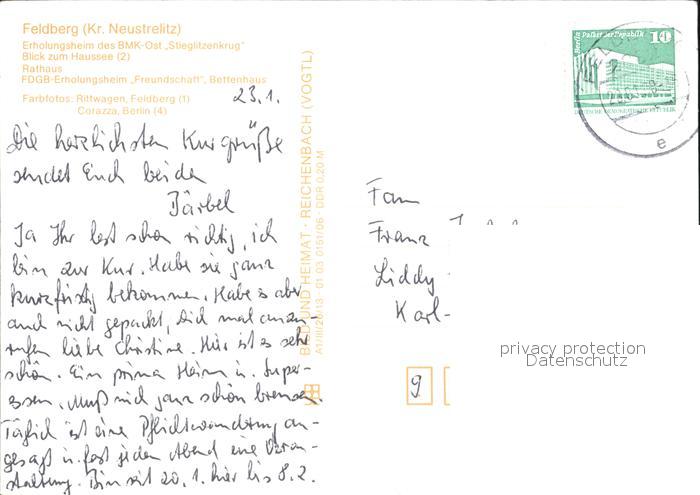 Feldberg (Kr. Neustrelitz)
Erholungsheim des BMK-Ost „Stieglitzenkrug"
Blick zum Haussee (2)
Rathaus
FDGB-Erholungsheim „Freundschaft", Bettenhaus
Farbfotos: Rittwagen, Feldberg (1)
Corazza, Berlin (4)
23.1.
Die herzlichsten Kurgrüße
sendet Euch beiden
Bärbel
Ja Ihr lest schon richtig, ich
bin zur Kur. Habe sie ganz
kurzfristig bekommen. Habe es aber
auch nicht gepackt, Dich mal anzu-
rufen liebe Christine. Hier ist es sehr
schön. Ein prima Heim u. Super-
essen. Muß mich ganz schön bremsen.
Täglich ist eine Pflichtwanderung an-
gesagt u. fast jeden Abend eine Veran-
staltung. Bin seit 20.1. hier bis 8.2.
BILD UND HEIMAT · REICHENBACH (VOGTL)
A1/III/26/13 - 01 03 0151/06 · DDR 0,20 M
Berlin Palast der Republik 10
DEUTSCHE DEMOKRATISCHE REPUBLIK
e
Fam
Franz
Liddy
Karl-
9
privacy protection
Datenschutz